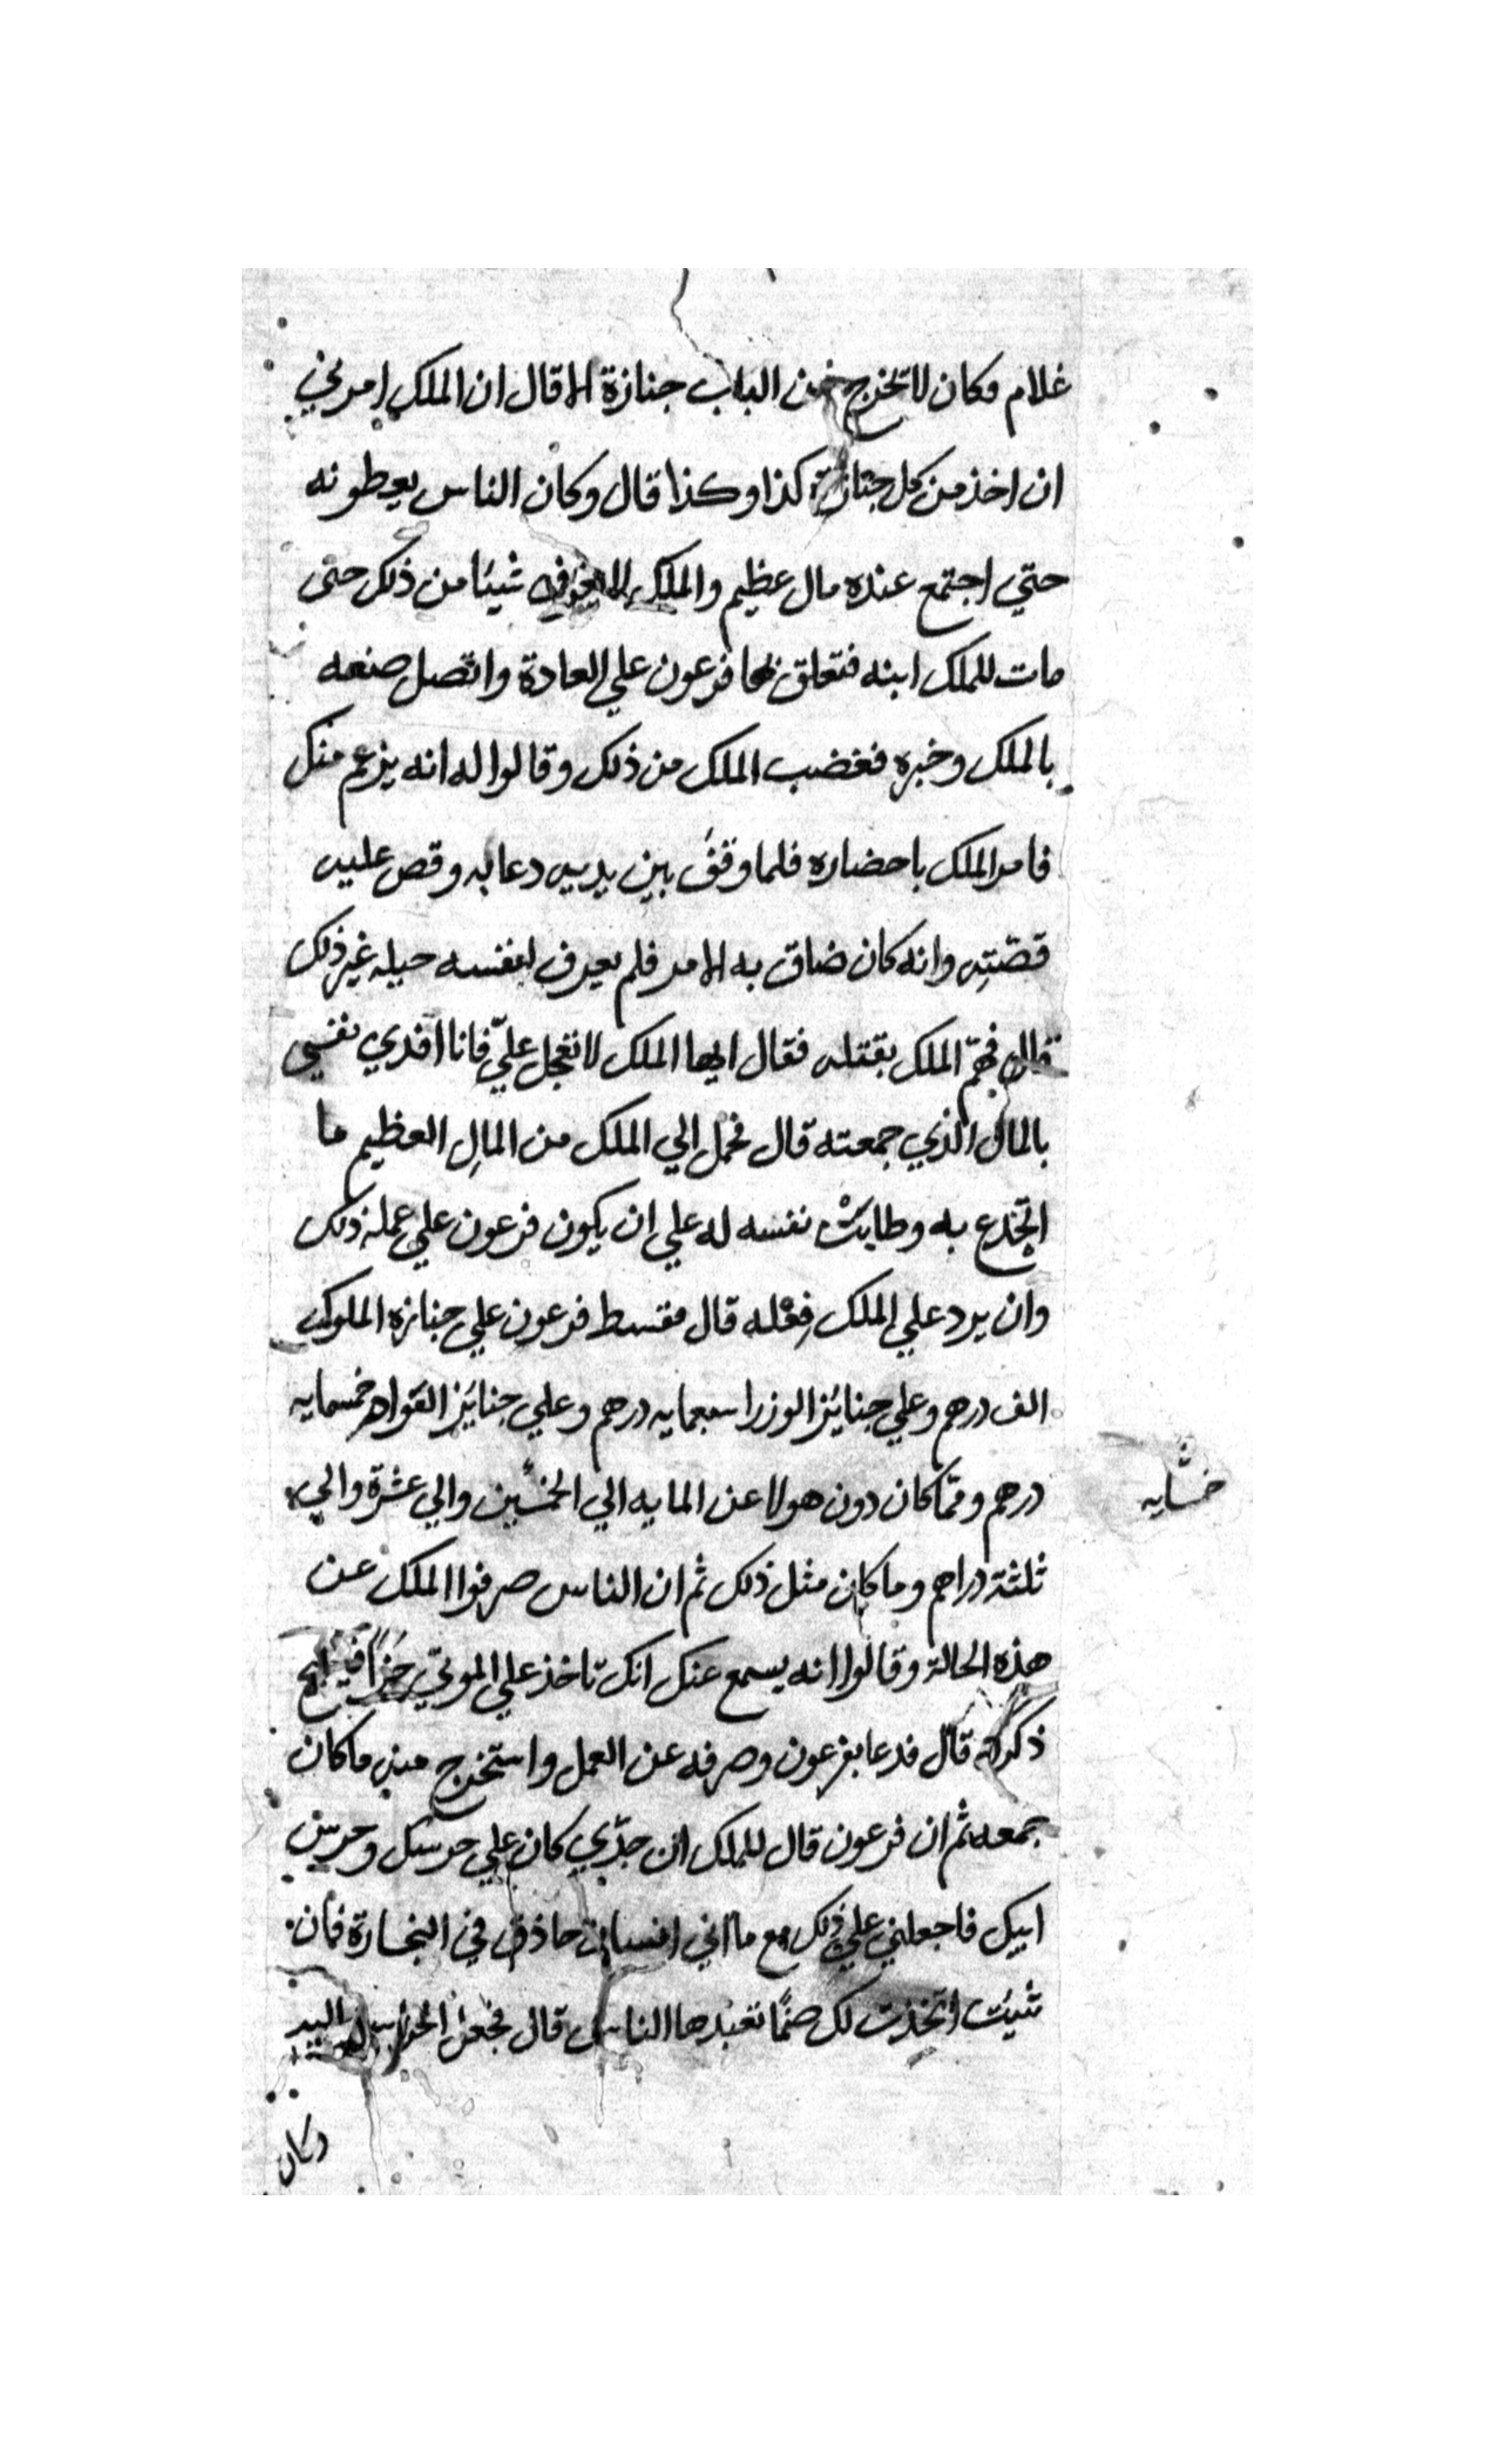 غلام فكان لا تخرج من الباب جنازة الا قال ان الملك امرني
ان اخذ من كل جنازة كذا وكذا قال وكان الناس يعطونه
حتي اجتمع عنده مال عظيم والملك لا شيئا من ذلك حتى
مات للملك ابنه فتعلق بها فرعون علي العادة واتصل صنعه
بالملك وخبره فغضب الملك من ذلك وقالوا له انه يزعم منك
فامر الملك باحضاره فلما وقف بين يديه دعا به وقص عليه
قصّتِه وانه كان ضاق به الامر فلم يعرف لنفسه حيلة غير ذلك
قال فهمّ الملك بقتله فقال ايها الملك لا تعجل عليّ فانا افدي نفسي
بالمال الذي جمعته قال فحمل الي الملك من المالِ العظيم ما
انخدع به وطابتْ نفسه له علي ان يكون فرعون علي عمله ذلك
وان يرد علي الملك فِعْله قال فقسط فرعون علي جنازه الملوك
الف درهم وعلي جنايَز الوزرا سبعمايه درهم وعلي جنايَز القواد خمسمايه
خمسمايه
درهم وممّا كان دون هولا عن المايه الي الخمسين والي عشرة والي
ثلثة دراهم وما كان مثل ذلك ثم ان الناس صرفوا الملك عن
هذه الحالة وقالوا انه يسمع عنك انك تاخذ علي الموتي
ذكرك قال فدعا بفرعون وصرفه عن العمل واستخرج منه ما كان
جمعه ثم ان فرعون قال للملك ان جدّي كان علي حرسك وحرس
ابيك فاجعلني علي ذلك مع ما اني انسان حاذق في النجارة فان
شيئت اتخذت لك صنمًا تعبدها الناس قال فجعل الحرس اليه
وكان